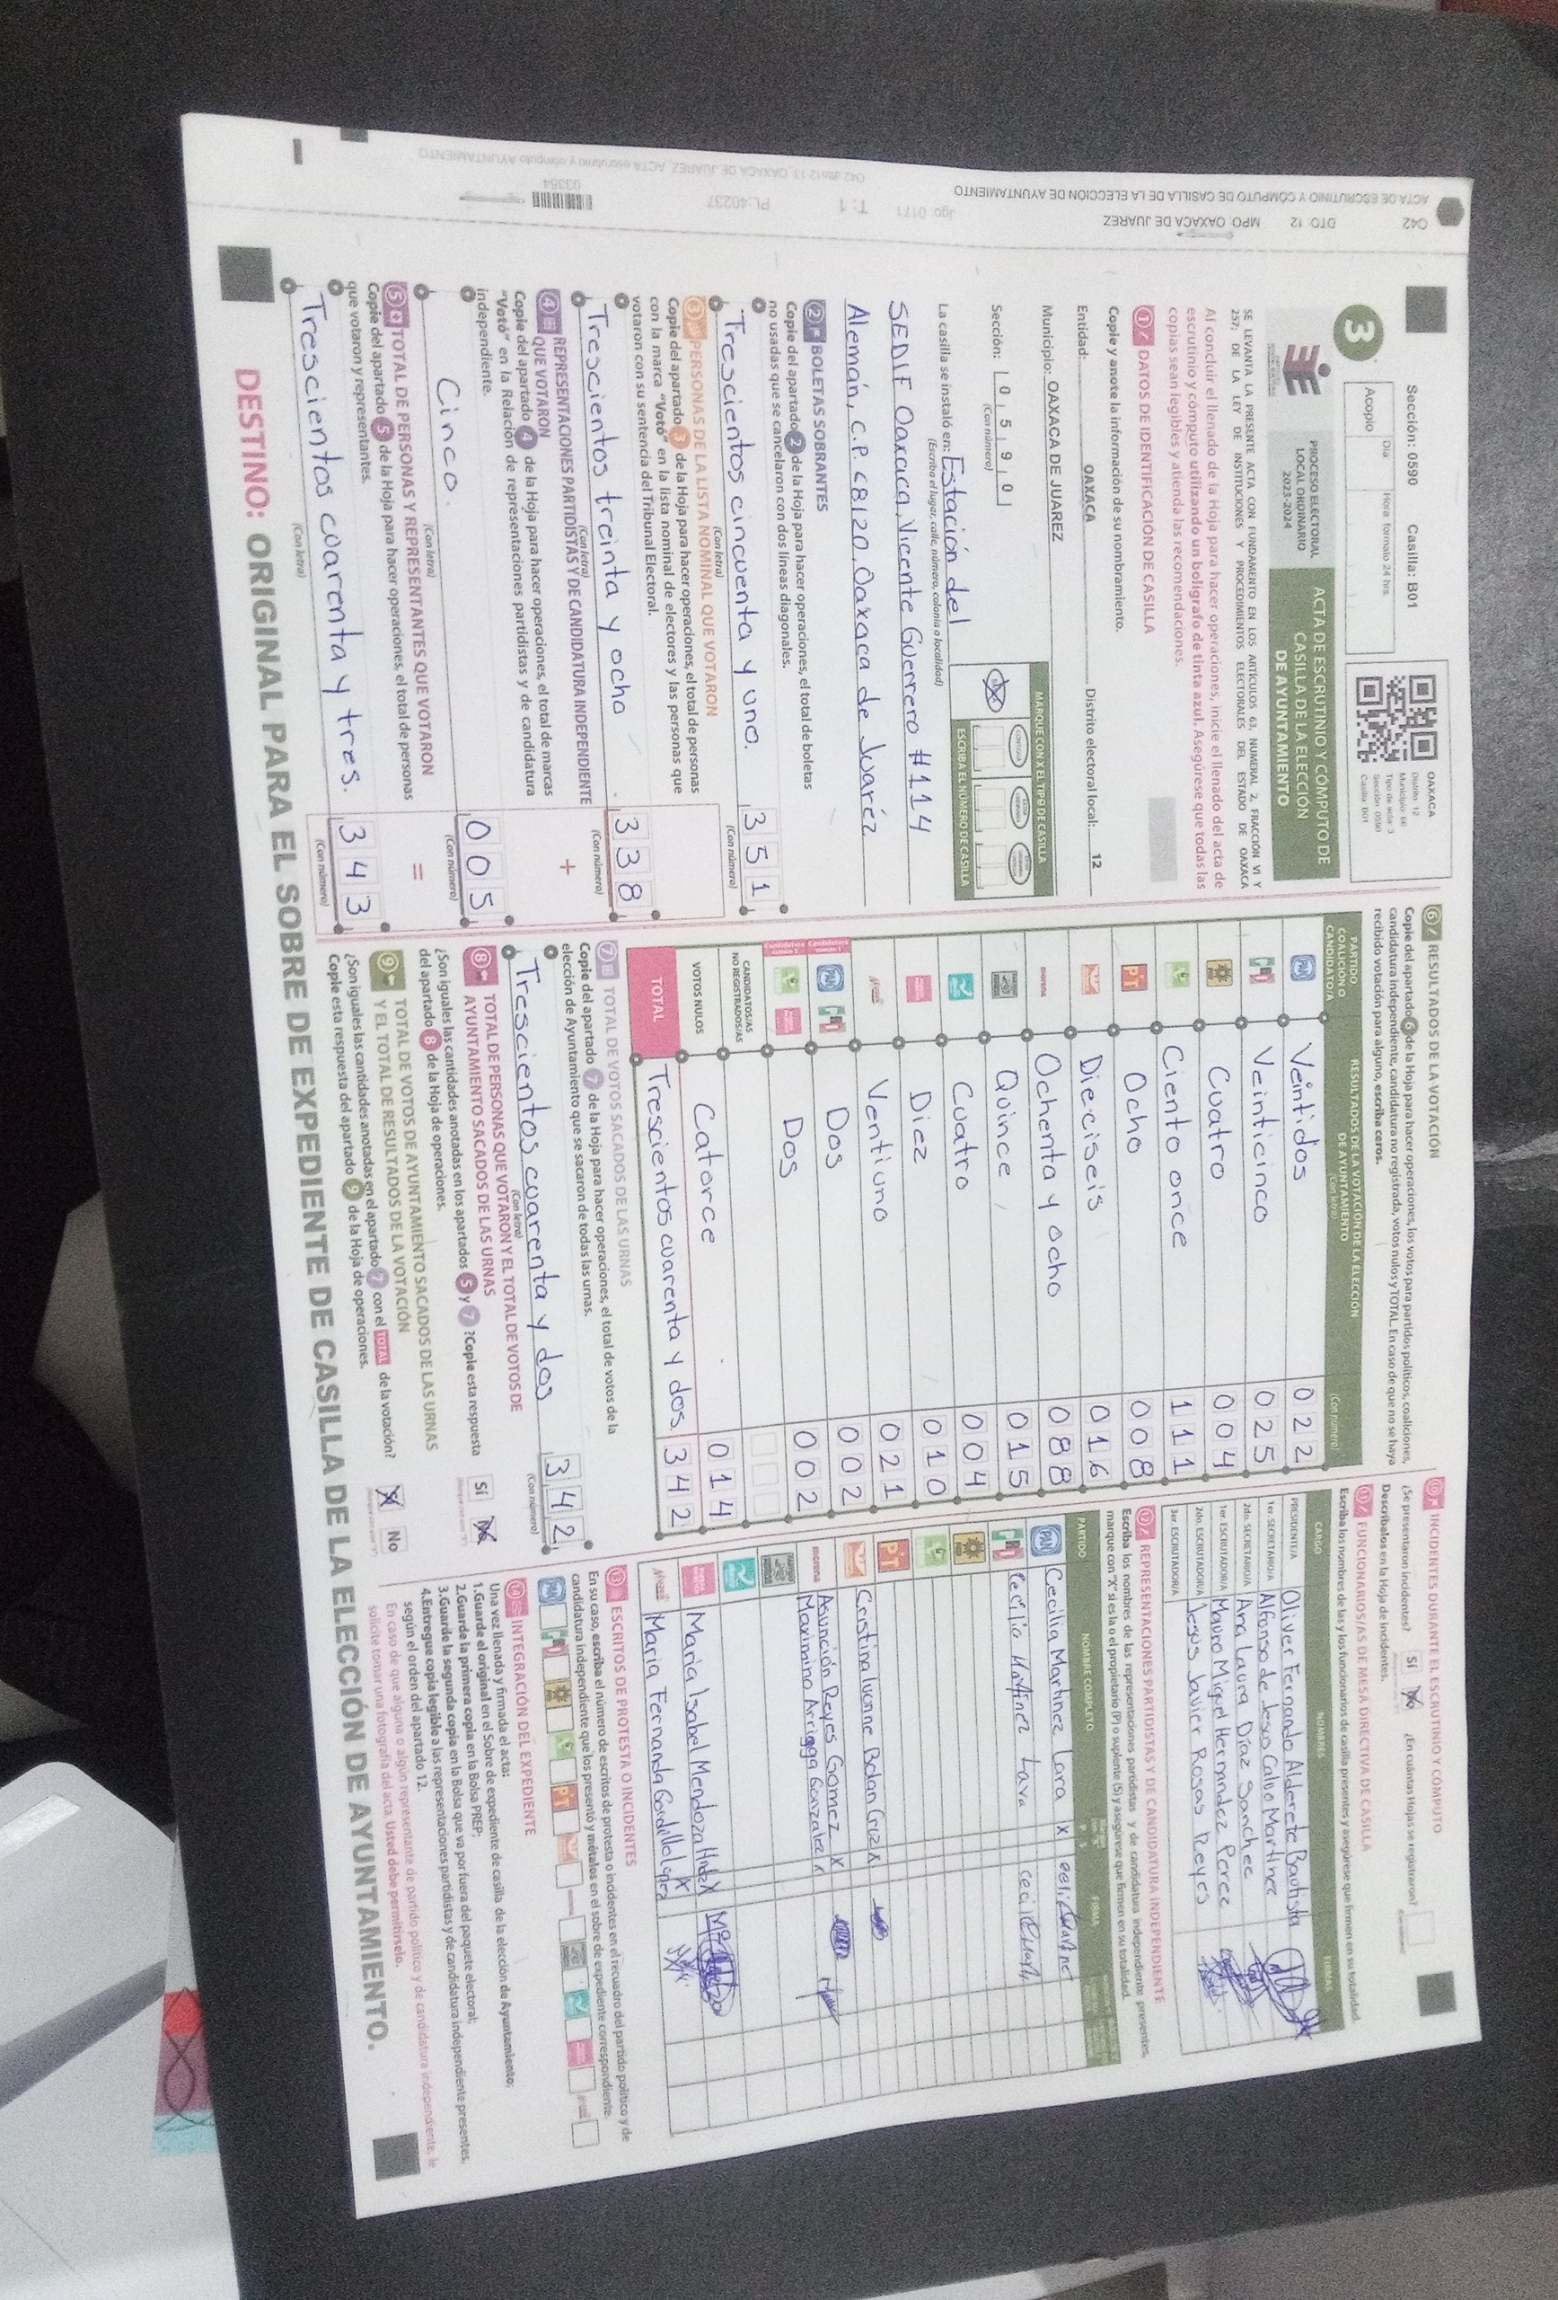 Sección: 0590 Casilla: B01
OAXACA
Distrito: 12
Tipo de acta: 3
Sección: 0590
Casilla: B01
3
Día
Hora formato 24 hrs.
Acopio
PROCESO ELECTORAL
LOCAL ORDINARIO
2023-2024
ACTA DE ESCRUTINIO Y CÓMPUTO DE
CASILLA DE LA ELECCIÓN
DE AYUNTAMIENTO
SE LEVANTA LA PRESENTE ACTA CON FUNDAMENTO EN LOS ARTÍCULOS 63, NUMERAL 2, FRACCIÓN VI Y
257; DE LA LEY DE INSTITUCIONES Y PROCEDIMIENTOS ELECTORALES DEL ESTADO DE OAXACA
Al concluir el llenado de la Hoja para hacer operaciones, inicie el llenado del acta de
escrutinio y cómputo utilizando un bolígrafo de tinta azul. Asegúrese que todas las
copias sean legibles y atienda las recomendaciones.
1 DATOS DE IDENTIFICACIÓN DE CASILLA
Copie y anote la información de su nombramiento.
Entidad: OAXACA Distrito electoral local: 12
Municipio: OAXACA DE JUAREZ
MARQUE CON X EL TIPO DE CASILLA
Sección: 0 5 9 0
(Con número)
ESCRIBA EL NÚMERO DE CASILLA
La casilla se instaló en: Estación del
(Escriba el lugar, calle, número, colonia o localidad)
SEDIF Oaxaca, Vicente Guerrero #114
Alemán, C.P. 68120, Oaxaca de Juaréz
2 BOLETAS SOBRANTES
Copie del apartado 2 de la Hoja para hacer operaciones, el total de boletas
no usadas que se cancelaron con dos líneas diagonales.
Trescientos cincuenta y uno. 3 5 1
(Con letra) (Con número)
3 PERSONAS DE LA LISTA NOMINAL QUE VOTARON
Copie del apartado 3 de la Hoja para hacer operaciones, el total de personas
con la marca "Votó" en la lista nominal de electores y las personas que
votaron con su sentencia del Tribunal Electoral.
Trescientos treinta y ocho 3 3 8
(Con letra) (Con número)
4 REPRESENTACIONES PARTIDISTAS Y DE CANDIDATURA INDEPENDIENTE
QUE VOTARON
+
Copie del apartado 4 de la Hoja para hacer operaciones, el total de marcas
"Votó" en la Relación de representaciones partidistas y de candidatura
independiente.
Cinco. 0 0 5
(Con letra) (Con número)
5 TOTAL DE PERSONAS Y REPRESENTANTES QUE VOTARON
=
Copie del apartado 5 de la Hoja para hacer operaciones, el total de personas
que votaron y representantes.
Trescientos cuarenta y tres. 3 4 3
(Con letra) (Con número)
6 RESULTADOS DE LA VOTACIÓN
Copie del apartado 6 de la Hoja para hacer operaciones, los votos para partidos políticos, coaliciones,
candidatura independiente, candidatura no registrada, votos nulos y TOTAL. En caso de que no se haya
recibido votación para alguno, escriba ceros.
PARTIDO
COALICIÓN O
CANDIDATO/A
RESULTADOS DE LA VOTACIÓN DE LA ELECCIÓN
DE AYUNTAMIENTO
(Con letra)
(Con número)
PAN Veintidos 0 2 2
PRI Veinticinco 0 2 5
Cuatro 0 0 4
Ciento once 1 1 1
PT Ocho 0 0 8
Dieciseis 0 1 6
morena Ochenta y ocho 0 8 8
Quince 0 1 5
Cuatro 0 0 4
Diez 0 1 0
Ventiuno 0 2 1
PAN PRI Dos 0 0 2
Dos 0 0 2
CANDIDATOS/AS
NO REGISTRADOS/AS
VOTOS NULOS Catorce 0 1 4
TOTAL Trescientos cuarenta y dos 3 4 2
7 TOTAL DE VOTOS SACADOS DE LAS URNAS
Copie del apartado 7 de la Hoja para hacer operaciones, el total de votos de la
elección de Ayuntamiento que se sacaron de todas las urnas.
Trescientos cuarenta y dos 3 4 2
(Con letra) (Con número)
8 TOTAL DE PERSONAS QUE VOTARON Y EL TOTAL DE VOTOS DE
AYUNTAMIENTO SACADOS DE LAS URNAS
¿Son iguales las cantidades anotadas en los apartados 5 y 7 ?Copie esta respuesta
del apartado 8 de la Hoja de operaciones.
Sí No
9 TOTAL DE VOTOS DE AYUNTAMIENTO SACADOS DE LAS URNAS
Y EL TOTAL DE RESULTADOS DE LA VOTACIÓN
¿Son iguales las cantidades anotadas en el apartado 7 con el TOTAL de la votación?
Copie esta respuesta del apartado 9 de la Hoja de operaciones.
No
10 INCIDENTES DURANTE EL ESCRUTINIO Y CÓMPUTO
¿Se presentaron incidentes? Sí No ¿En cuántas Hojas se registraron?
Descríbalos en la Hoja de incidentes.
11 FUNCIONARIOS/AS DE MESA DIRECTIVA DE CASILLA
Escriba los nombres de las y los funcionarios de casilla presentes y asegúrese que firmen en su totalidad.
CARGO NOMBRES FIRMAS
PRESIDENTE/A Oliver Fernando Alderete Bautista
1er. SECRETARIO/A Alfonso de Jesus Calvo Martínez
2do. SECRETARIO/A Ana Laura Díaz Sanchez
1er. ESCRUTADOR/A Mauro Miguel Hernandez Perez
2do. ESCRUTADOR/A Jesus Javier Rosas Reyes
3er. ESCRUTADOR/A
12 REPRESENTACIONES PARTIDISTAS Y DE CANDIDATURA INDEPENDIENTE
Escriba los nombres de las representaciones partidistas y de candidatura independiente presentes,
marque con "X" si es la o el propietario (P) o suplente (S) y asegúrese que firmen en su totalidad.
PARTIDO NOMBRE COMPLETO FIRMA
PAN Cecilia Martinez Lara X
PRI Cecilio Martinez Lava
PT
Cristina Ivonne Bolan Cruz X
morena Asunción Reyes Gomez X
Maximino Arriaga Gonzalez X
Maria Isabel Mendoza Hndez X
Maria Fernanda Gordillo López X
13 ESCRITOS DE PROTESTA O INCIDENTES
En su caso, escriba el número de escritos de protesta o incidentes en el recuadro del partido político y de
candidatura independiente que los presentó y métalos en el sobre de expediente correspondiente.
14 INTEGRACIÓN DEL EXPEDIENTE
Una vez llenada y firmada el acta:
1.Guarde el original en el Sobre de expediente de casilla de la elección de Ayuntamiento;
2.Guarde la primera copia en la Bolsa PREP;
3.Guarde la segunda copia en la Bolsa que va por fuera del paquete electoral;
4.Entregue copia legible a las representaciones partidistas y de candidatura independiente presentes,
según el orden del apartado 12.
En caso de que alguna o algún representante de partido político y de candidatura independiente, le
solicite tomar una fotografía del acta. Usted debe permitírselo.
DESTINO: ORIGINAL PARA EL SOBRE DE EXPEDIENTE DE CASILLA DE LA ELECCIÓN DE AYUNTAMIENTO.
042 DTO 12 MPO. OAXACA DE JUAREZ
ACTA DE ESCRUTINIO Y CÓMPUTO DE CASILLA DE LA ELECCIÓN DE AYUNTAMIENTO
Jgo 0171 T: 1 PL:40237 03354